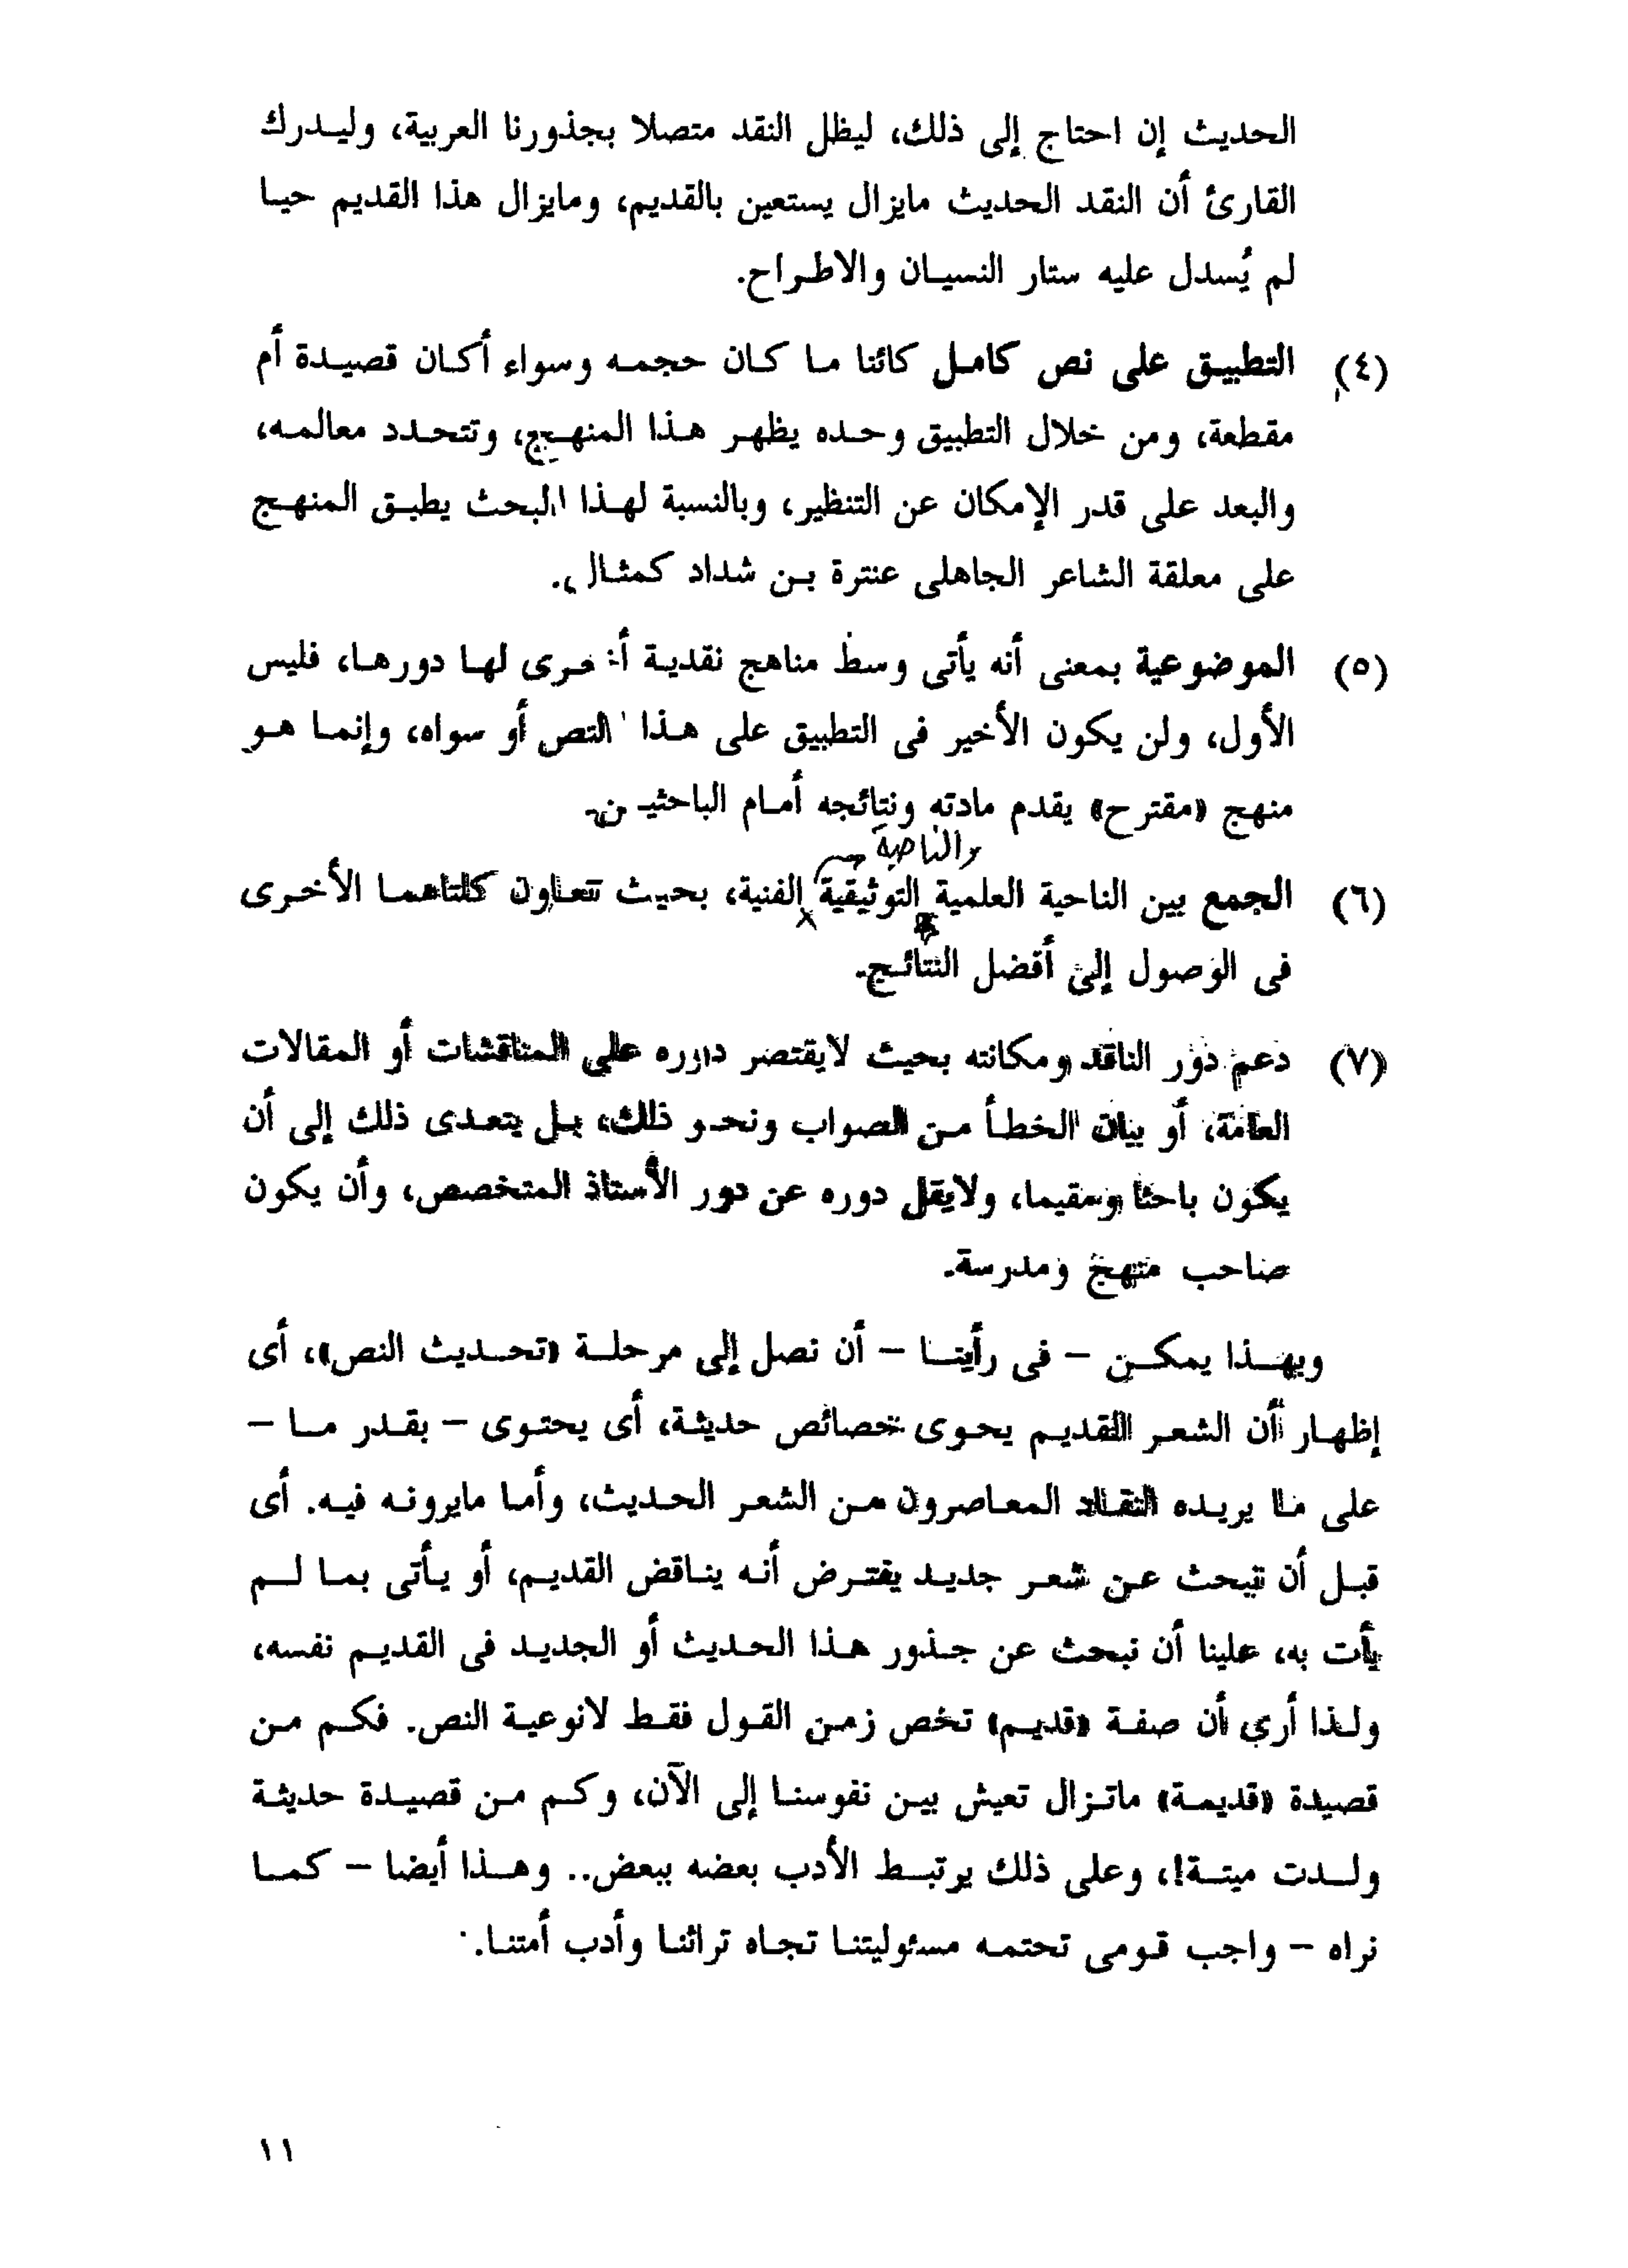 الحديث إن احتاج إلى ذلك، ليظل النقد متصلا بجذورنا العربية، وليدرك
القارئ أن النقد الحديث مايزال يستعين بالقديم، ومايزال هذا القديم حيا
لم يُسدل عليه ستار النسيان والاطراح.
(٤) التطبيق على نص كامل كائنا ما كان حجمه وسواء أكان قصيدة أم
مقطعة، ومن خلال التطبيق وحده يظهر هذا المنهج، وتتحدد معالمه،
والبعد على قدر الإمكان عن التنظير، وبالنسبة لهذا البحث يطبق المنهج
على معلقة الشاعر الجاهلى عنترة بن شداد كمثال.
(٥) الموضوعية بمعنى أنه يأتى وسط مناهج نقدية أخرى لها دورها، فليس
الأول، ولن يكون الأخير فى التطبيق على هذا النص أو سواه، وإنما هو
منهج «مقترح» يقدم مادته ونتائجه أمام الباحثين.
والناحية
(٦) الجمع بين الناحية العلمية التوثيقية الفنية، بحيث تتعاون كلتاهما الأخرى
فى الوصول إلى أفضل النتائج.
(٧) دعم دور الناقد ومكانته بحيث لايقتصر دوره على المناقشات أو المقالات
العامة، أو بيان الخطأ من الصواب ونحو ذلك، بل يتعدى ذلك إلى أن
يكون باحثا ومقيما، ولايقل دوره عن دور الأستاذ المتخصص، وأن يكون
صاحب منهج ومدرسة.
وبهذا يمكن – فى رأينا – أن نصل إلى مرحلة «تحديث النص»، أى
إظهار أن الشعر القديم يحوى خصائص حديثة، أى يحتوى – بقدر ما –
على ما يريده النقاد المعاصرون من الشعر الحديث، وأما مايرونه فيه. أى
قبل أن نبحث عن شعر جديد يفترض أنه يناقض القديم، أو يأتى بما لم
يأت به، علينا أن نبحث عن جذور هذا الحديث أو الجديد فى القديم نفسه،
ولذا أرى أن صفة «قديم» تخص زمن القول فقط لانوعية النص. فكم من
قصيدة «قديمة» ماتزال تعيش بين نفوسنا إلى الآن، وكم من قصيدة حديثة
ولدت ميتة!، وعلى ذلك يرتبط الأدب بعضه ببعض.. وهذا أيضا – كما
نراه – واجب قومى تحتمه مسئوليتنا تجاه تراثنا وأدب أمتنا.
١١